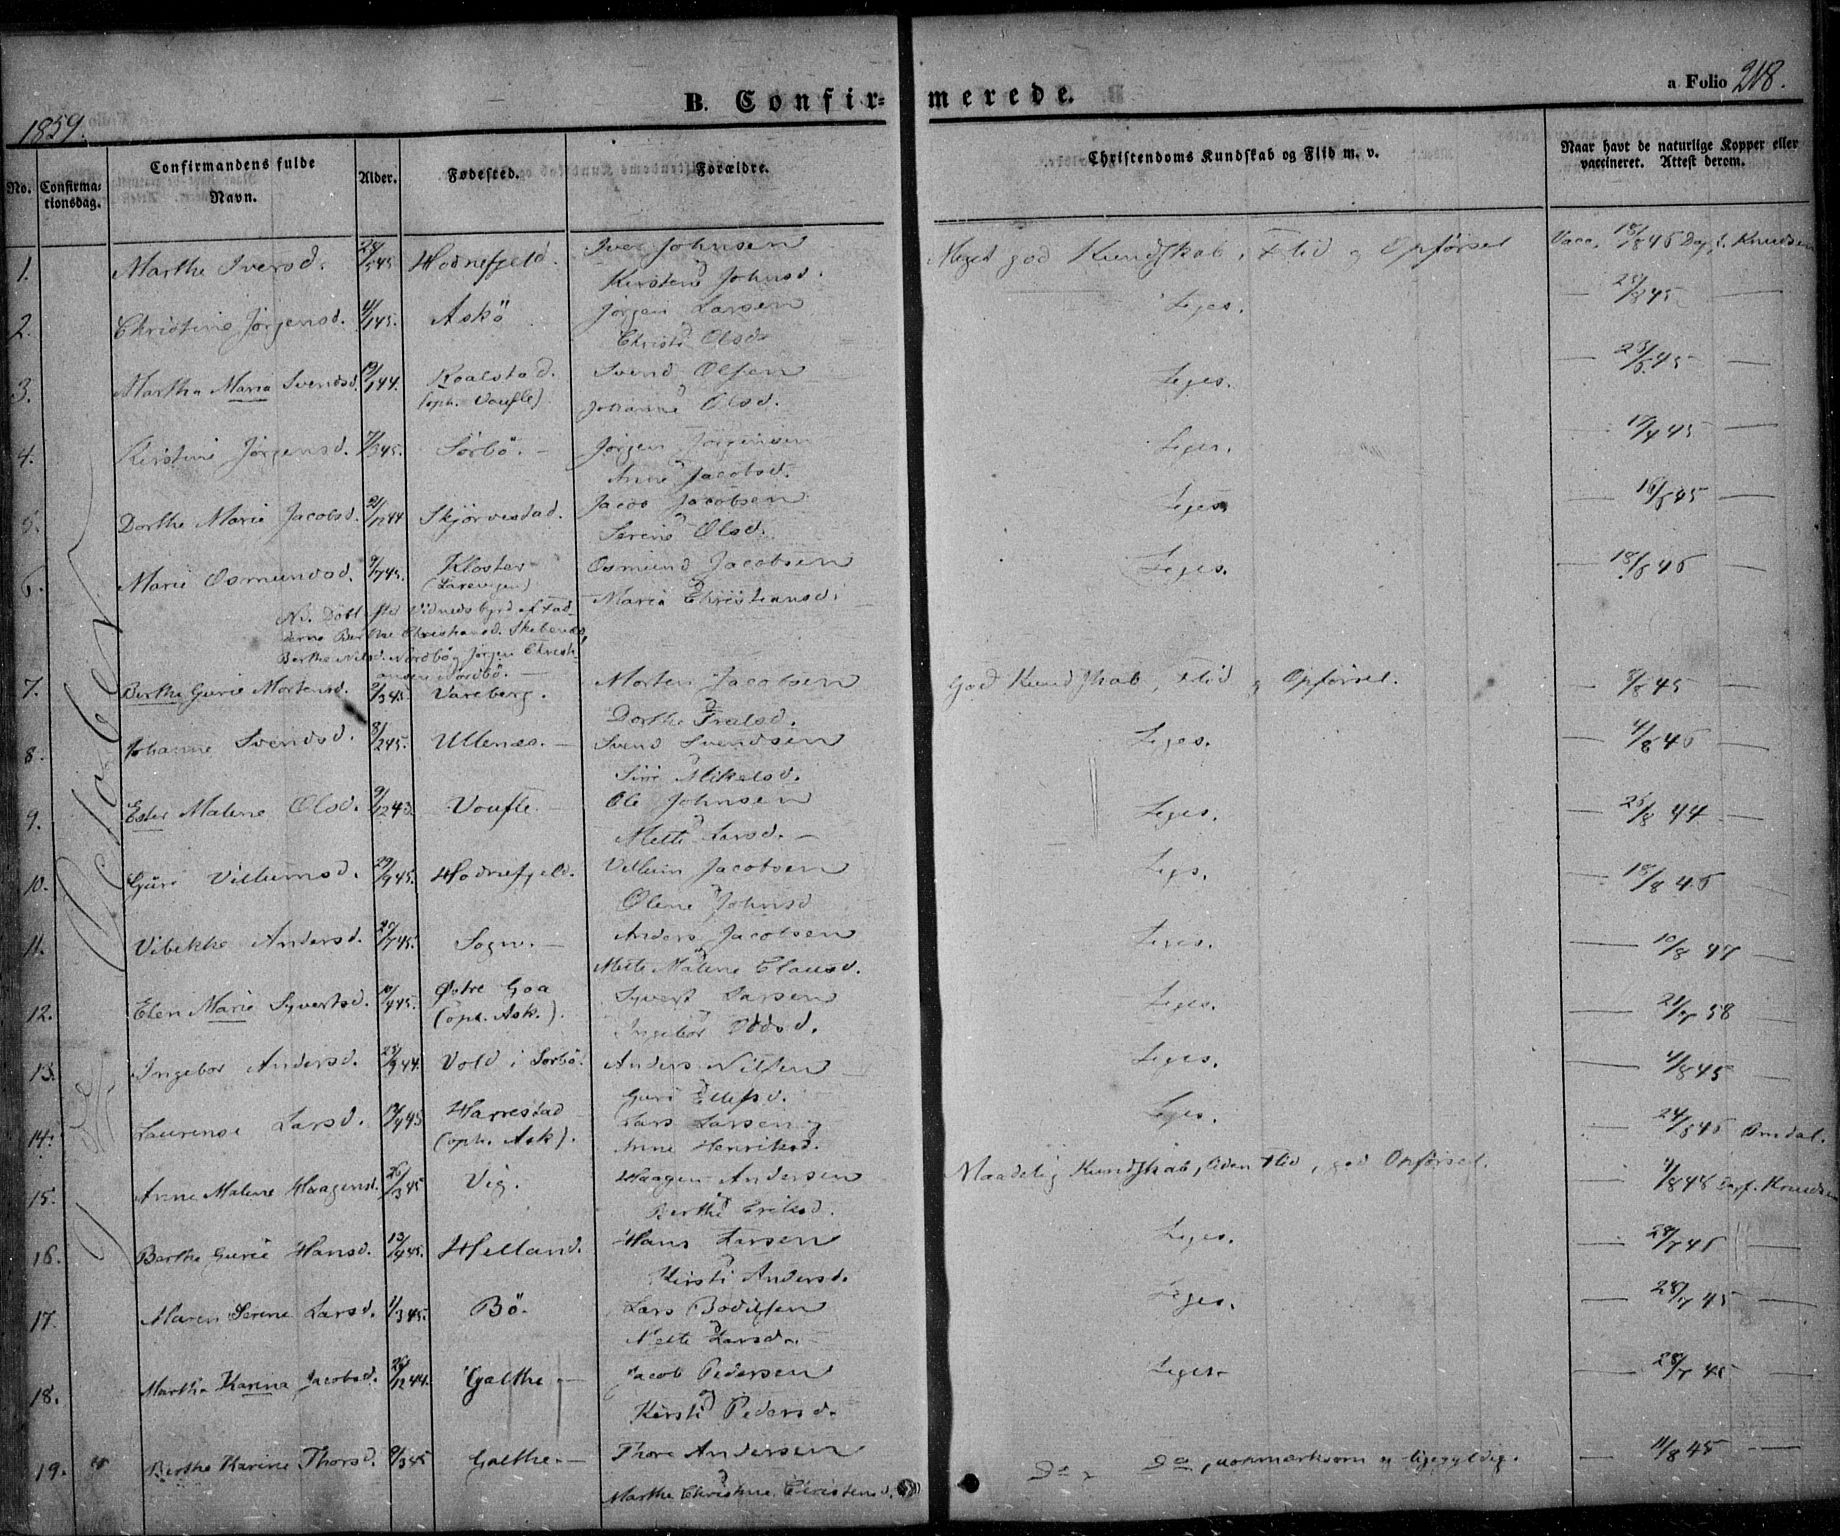 B. Confirmerede.
a Folio 218.
1859.
No. Confirmationsdag. Confirmandens fulde Navn. Alder. Fødested. Forældre. Christendoms Kundskab og Flid m. v. Naar havt de naturlige Kopper eller vaccineret. Attest derom.
2 October
1. Marthe Iversd. 24/5 45 Hodnefjeld. Iver Johnsen Meget god Kundskab, Flid og Opførsel Vacc. 18/8 46 Dagf. Knudsen
Kirstine Johnsd.
2. Christine Jørgensd. 4/1 45. Askö Jörgen Larsen Liges. 25/8 45
Christi Olsd
3. Martha Maria Svendsd. 19/1 44. Roalstad. Svend Olsen Liges. 23/6 45
(oph. Voufle) Johanne Olsd.
4. Kirstine Jörgensd. 7/3 45. Sörbö. Jörgen Jörgensen Liges. 19/4 45
Anne Jacobsd.
5. Dorthe Marie Jacobsd. 21/12 44 Skjörvestad. Jacob Jacobsen Liges. 16/8 45
Serine Olsd.
6. Marie Osmundsd. 9/7 45. Kloster Osmund Jacobsen Liges. 18/8 46
Maria Christiansd.
derne Berthe Christiansd.
Berthe Nilsd. Nordbö og Jörgen Christi-
ansen Nordbö.
7. Berthe Gurie Mortensd. 2/3 45. Vareberg. Morten Jacobsen God Kundskab, Flid og Opførsel. 8/8 45
Dorthe
8. Johanne Svendsd. 8/2 45. Ullenæs. Svend Svendsen Liges. 4/8 46
Siri Mikelsd.
9. Ester Malene Olsd. 9/12 43. Voufle. Ole Johnsen Liges. 26/8 44
Mette Larsd.
10. Guri Villumsd. 29/9 45. Hodnefjeld. Villum Jacobsen Ligs. 18/8 46
Olene Johnsd
11. Vibekke Andersd. 20/7 45. Sogn. Anders Jacobsen Liges. 10/8 47
Mette Malene Clausd.
12. Elen Marie Syvertsd. 10/4 45. Østre Goa Syvert Larsen Liges. 21/7 58
(oph. Ask.). Ingebor Oddsd.
13. Ingebor Andersd. 28/9 44. Vold i Sörbö. Anders Nilsen Liges. 4/8 45
Guri Ellefsd.
14. Laurense Larsd. 17/4 45 Harrestad Lars Larsen og Liges. 24/8 46 Omdal.
(oph. Ask). Anne Henriksd.
15. Anne Malene Haagensd. 26/3 45 Vig. Haagen Andersen Maadelig Kundskab, Uden Flid, god Opførsel. 4/8 48 Dagf. Knudsen
Berthe Eriksd.
16. Berthe Gurie Hansd. 13/9 45. Helland. Hans Larsen Liges. 28/7 46
Kirsti Andersd.
17. Maren Serine Larsd. 1/3 45. Bö. Lars Bodilsen Liges. 28/7 45
Mette Larsd.
18. Martha Karina Jacobsd. 26/12 44. Galthe Jacob Pedersen Liges. 28/7 45
Kirsti Pedersd.
19. Berthe Karine Thorsd. 9/3 45 Galthe. Thore Andersen Do Do, uopmærksom og ligegyldig. 11/8 45
Marthe Christine Christensd.